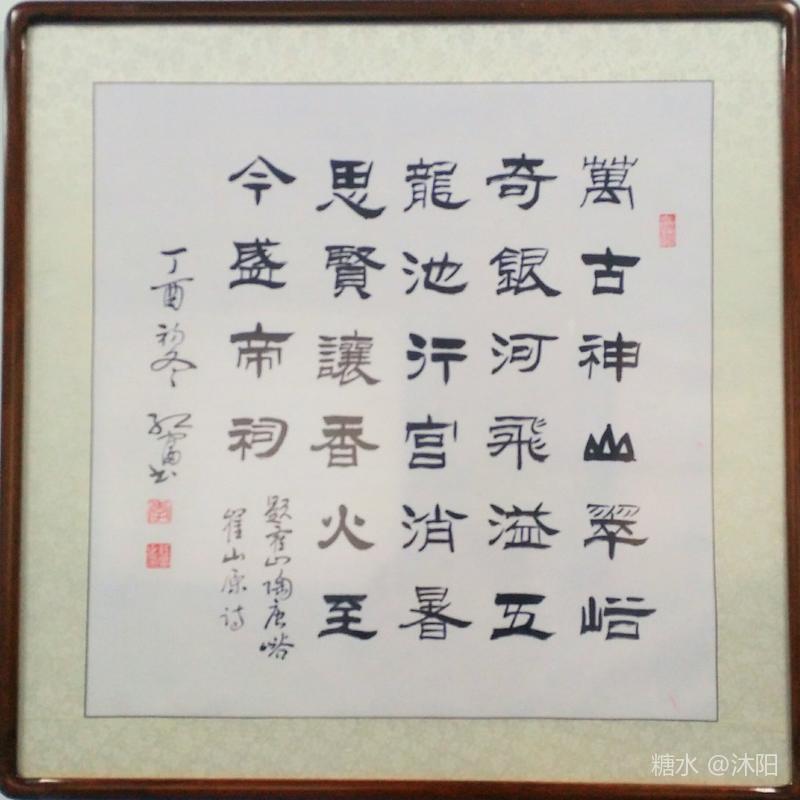 萬古神山翠峪
奇銀河飛溢五
龍池行宮消暑
思賢讓香火至
今盛帝祠
題崔山陶唐峪
崔山原詩
丁酉初冬 紅雷書
糖水 @沐阳